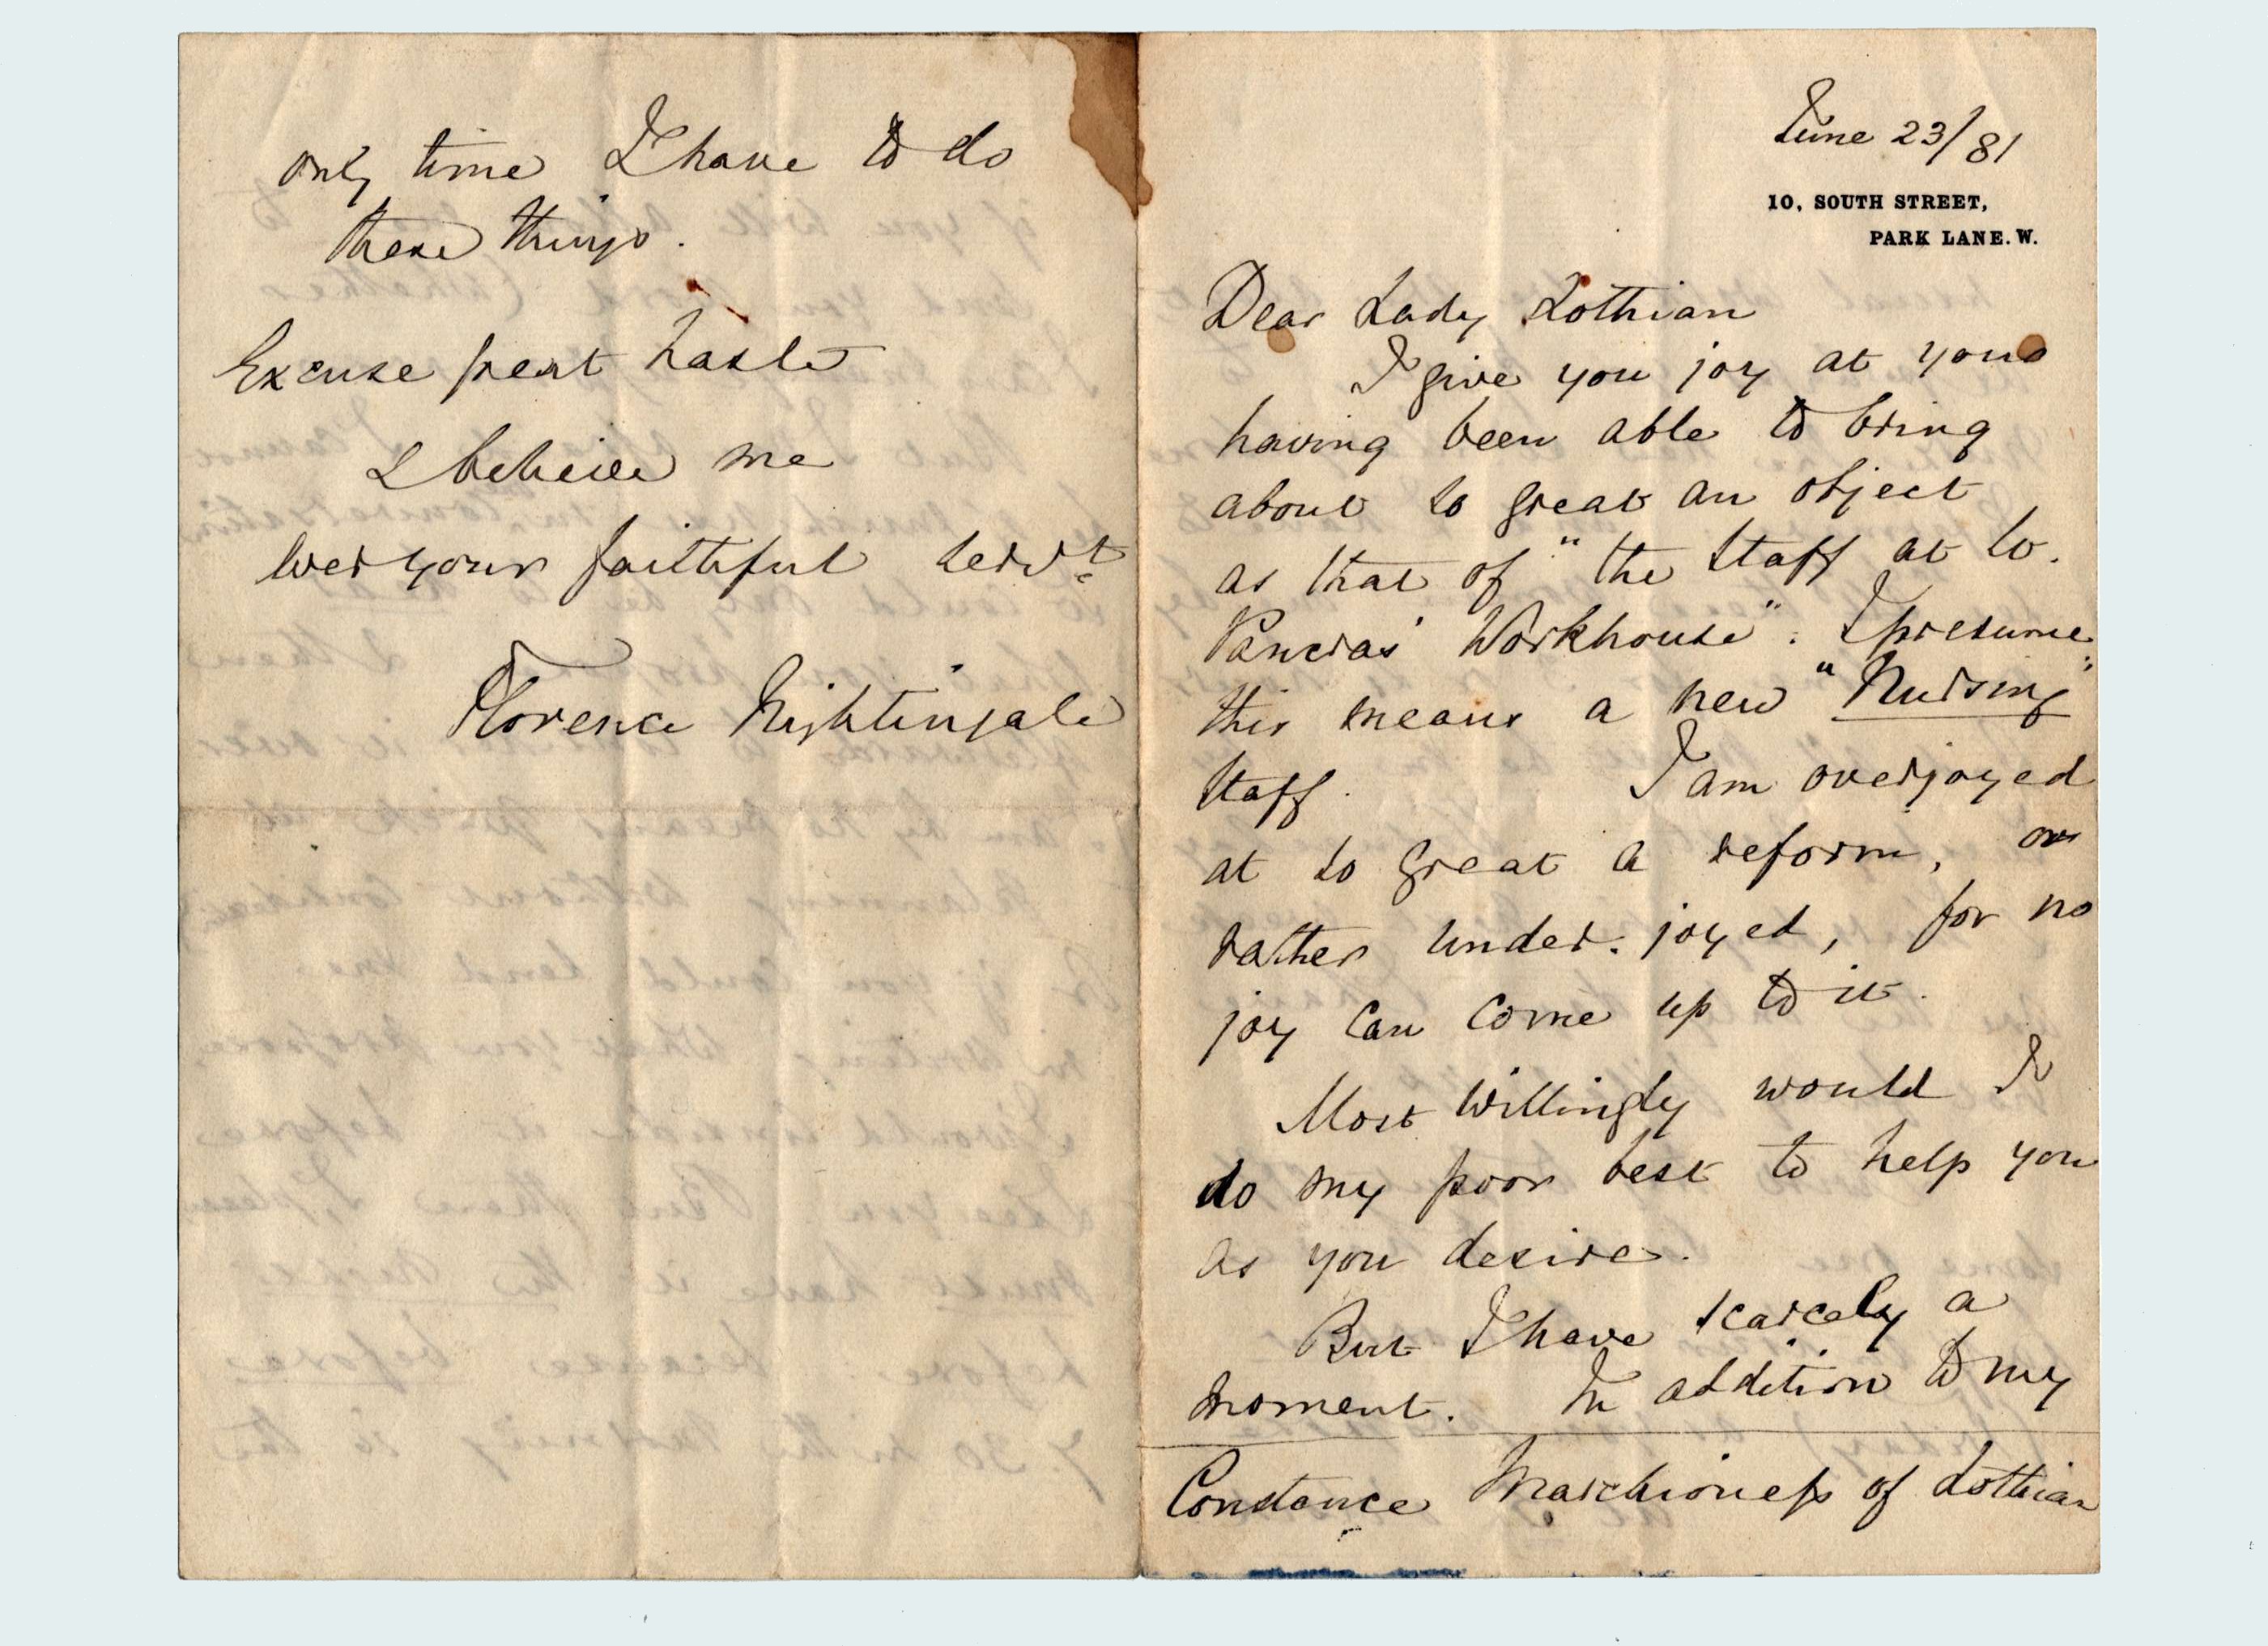 June 23/81
10, SOUTH STREET,
PARK LANE. W.
Dear Lady Lothian
I give you joy at your
having been able to bring
about so great an object
as that of "the Staff at St.
Pancras' Workhouse". I presume
this means a new "Nursing"
Staff. I am overjoyed
at so great a reform, or
rather under-joyed, for no
joy can come up to it.
Most willingly would I
do my poor best to help you
as you desire.
But I have scarcely a
moment. In addition to my
Constance Marchioness of Lothian
only time I have to do
these things.
Excuse great haste
& believe me
ever your faithful servt
Florence Nightingale